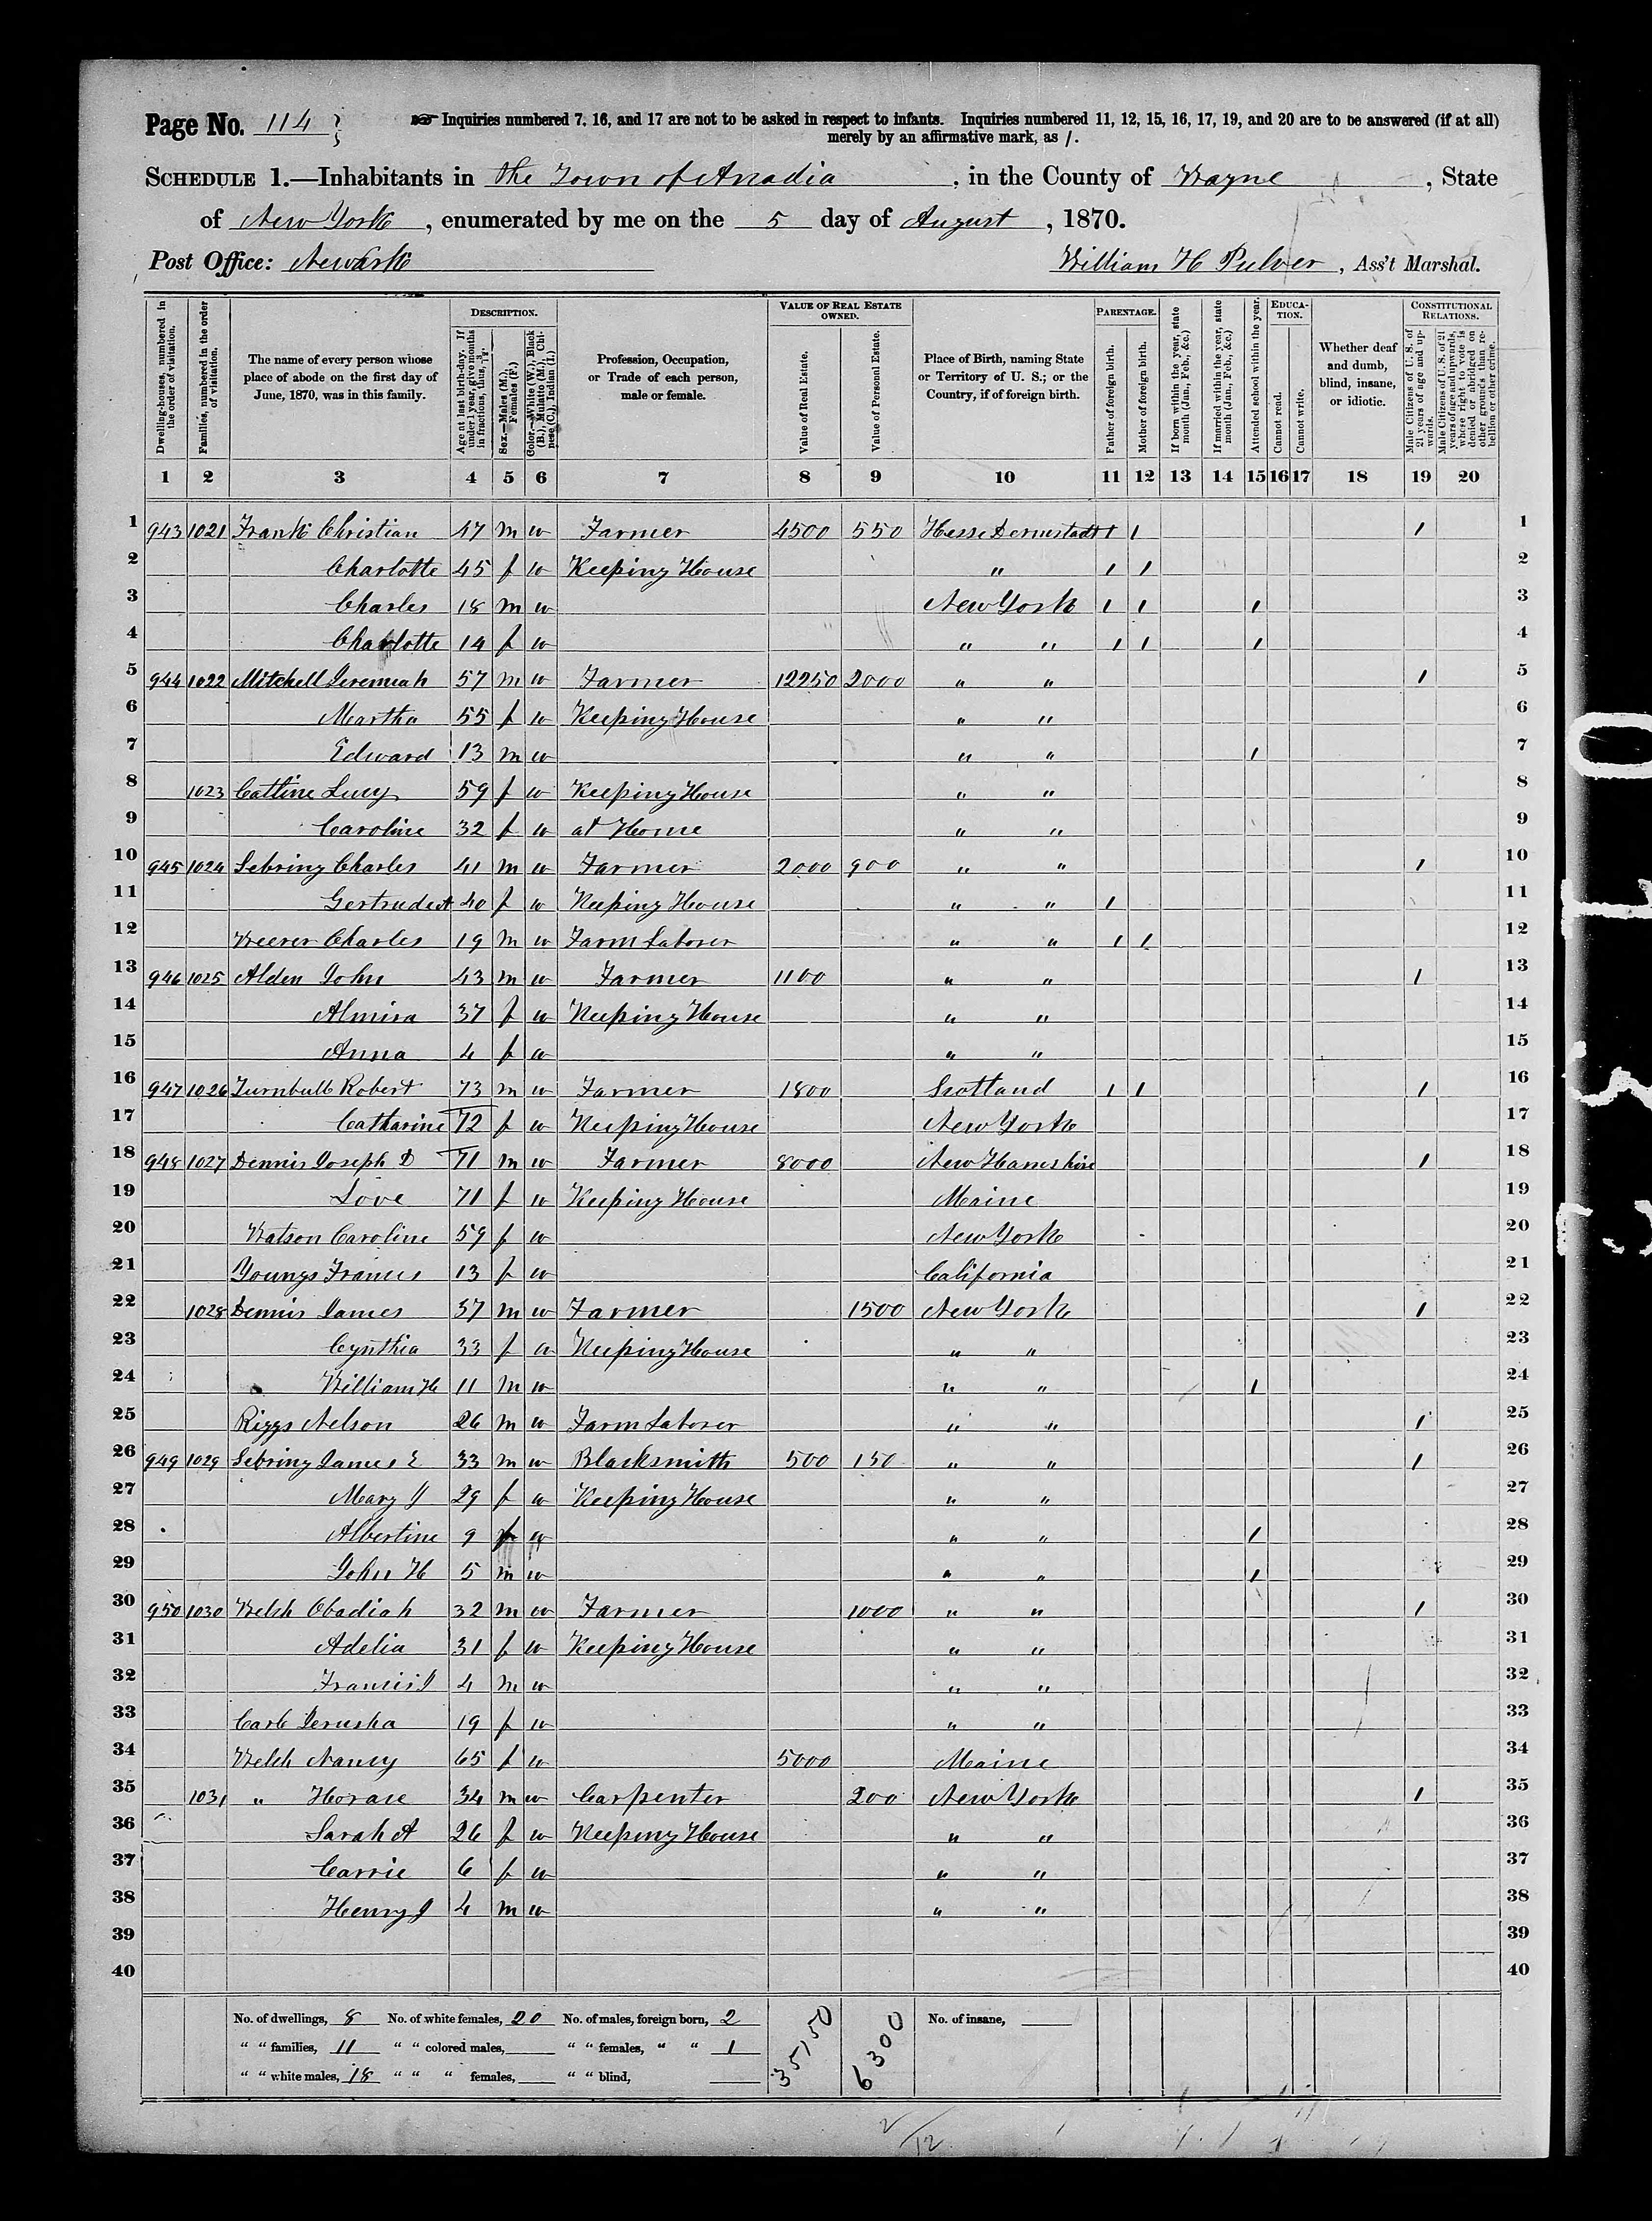 Page No. 114
Inquiries numbered 7, 16, and 17 are not to be asked in respect to infants. Inquiries numbered 11, 12, 15, 16, 17, 19, and 20 are to be answered (if at all)
merely by an affirmative mark, as /.
SCHEDULE 1.—Inhabitants in the Town of Arcadia, in the County of Wayne, State
of New York, enumerated by me on the 5 day of August, 1870.
Post Office: Newark
William H Pulver, Ass't Marshal.
Dwelling-houses, numbered in the order of visitation.
Families, numbered in the order of visitation.
The name of every person whose place of abode on the first day of June, 1870, was in this family.
DESCRIPTION.
Age at last birth-day. If under 1 year, give months in fractions, thus, 3/12.
Sex.—Males (M.), Females (F.)
Color.—White (W.), Black (B.), Mulatto (M.), Chinese (C.), Indian (I.)
Profession, Occupation, or Trade of each person, male or female.
VALUE OF REAL ESTATE OWNED.
Value of Real Estate.
Value of Personal Estate.
Place of Birth, naming State or Territory of U. S.; or the Country, if of foreign birth.
PARENTAGE.
Father of foreign birth.
Mother of foreign birth.
If born within the year, state month (Jan., Feb., &c.)
If married within the year, state month (Jan., Feb., &c.)
Attended school within the year.
EDUCATION.
Cannot read.
Cannot write.
Whether deaf and dumb, blind, insane, or idiotic.
CONSTITUTIONAL RELATIONS.
Male Citizens of U. S. of 21 years of age and upwards.
Male Citizens of U. S. of 21 years of age and upwards, whose right to vote is denied or abridged on other grounds than rebellion or other crime.
1 2 3 4 5 6 7 8 9 10 11 12 13 14 15 16 17 18 19 20
1 943 1021 Frank Christian 47 m w Farmer 4500 550 Hesse Dermstadt / / / 1
2 Charlotte 45 f w Keeping House " / / 2
3 Charles 18 m w New York / / / 3
4 Charlotte 14 f w " " / / / 4
5 944 1022 Mitchell Jeremiah 57 m w Farmer 12250 2000 " " / 5
6 Martha 55 f w Keeping House " " 6
7 Edward 13 m w " " / 7
8 1023 Lucy 59 f w Keeping House " " 8
9 Caroline 32 f w at Home " " 9
10 945 1024 Sebring Charles 41 m w Farmer 2000 900 " " / 10
11 Gertrude A 40 f w Keeping House " " / 11
12 Charles 19 m w Farm Laborer " " / / 12
13 946 1025 Alden John 43 m w Farmer 1100 " " / 13
14 Almira 37 f w Keeping House " " 14
15 Anna 4 f w " " 15
16 947 1026 Turnbull Robert 73 m w Farmer 1800 Scotland / / / 16
17 Catharine 72 f w Keeping House New York 17
18 948 1027 Dennis Joseph D 71 m w Farmer 8000 New Hamshire / 18
19 Love 71 f w Keeping House Maine 19
20 Watson Caroline 59 f w New York 20
21 Youngs Frances 13 f w California 21
22 1028 Dennis James 37 m w Farmer 1500 New York / 22
23 Cynthia 33 f w Keeping House " " 23
24 William H 11 m w " " / 24
25 Riggs Nelson 26 m w Farm Laborer " " / 25
26 949 1029 Sebring James E 33 m w Blacksmith 500 150 " " / 26
27 Mary J 29 f w Keeping House " " 27
28 Albertine 9 f w " " / 28
29 John H 5 m w " " / 29
30 950 1030 Welsh Obadiah 32 m w Farmer 1000 " " / 30
31 Adelia 31 f w Keeping House " " 31
32 Francis J 4 m w " " 32
33 Jerusha 19 f w " " 33
34 Welsh Nancy 65 f w 5000 Maine 34
35 1031 " Horace 34 m w Carpenter 200 New York / 35
36 Sarah A 26 f w Keeping House " " 36
37 Carrie 6 f w " " 37
38 Henry J 4 m w " " 38
39 39
40 40
No. of dwellings, 8 No. of white females, 20 No. of males, foreign born, 2 35,150 6300 No. of insane,
" " families, 11 " " colored males, " " females, " " 1
" " white males, 18 " " " females, " " blind,
2/12